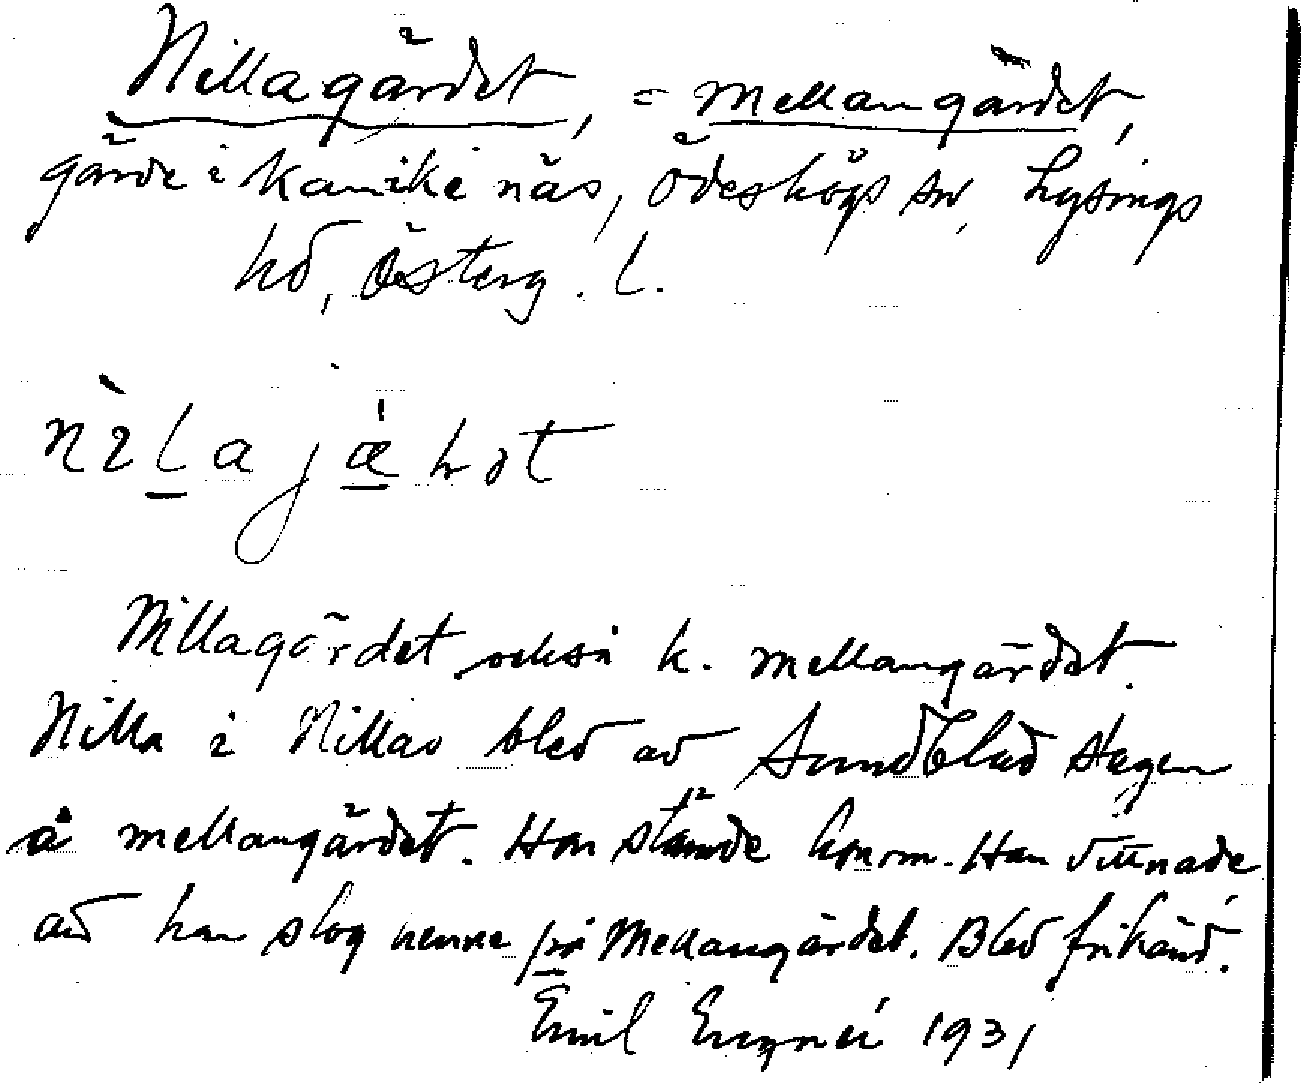 Nillagärdet, = Mellangärdet,
gärde i Kanike näs, Ödeshögs sn, Lysings
hd, Österg. l.
nìlajæ̀ṛət
Nillagärdet också k. Mellangärdet.
Nilla i Nillas blev av Sundblad slagen
å mellangärdet. Hon stämde honom. Han vittnade
att han slog henne på Mellangärdet. Blev frikänd.
Emil 1931